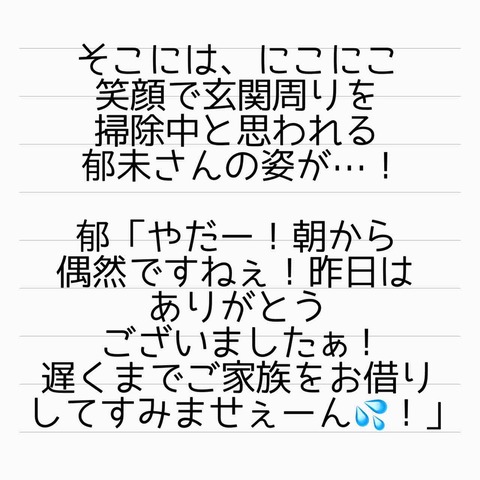 そこには、にこにこ
笑顔で玄関周りを
掃除中と思われる
郁未さんの姿が…！
郁「やだー！朝から
偶然ですねぇ！昨日は
ありがとう
ございましたぁ！
遅くまでご家族をお借り
してすみませぇーん💦！」